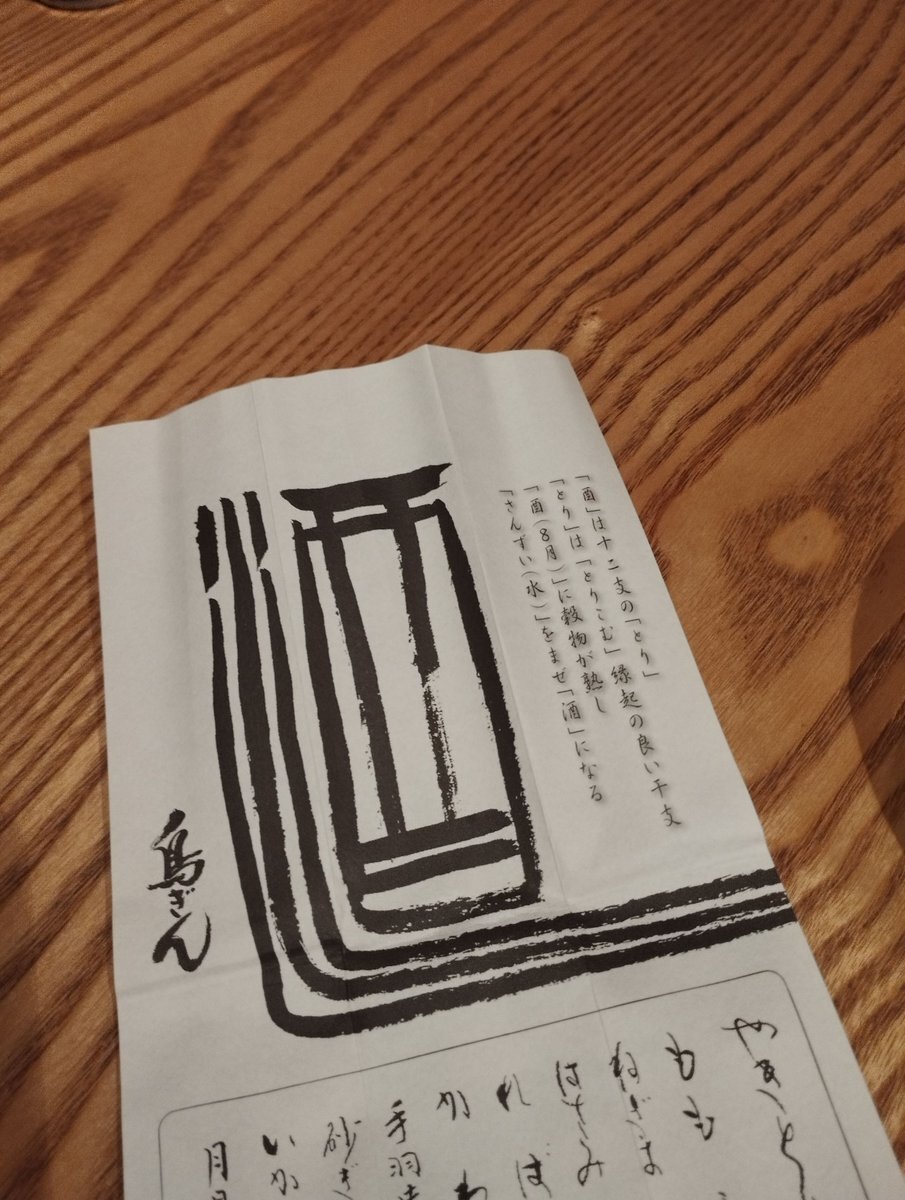 「酉」は十二支の「とり」
「とり」は「とりこむ」縁起の良い干支
「酉(8月)」に穀物が熟し
「さんずい(水)」をまぜ「酒」になる
酒
鳥ぎん
やきとり
もも
ねぎま
はさみ
ればー
かわ
手羽
砂ぎ
いか